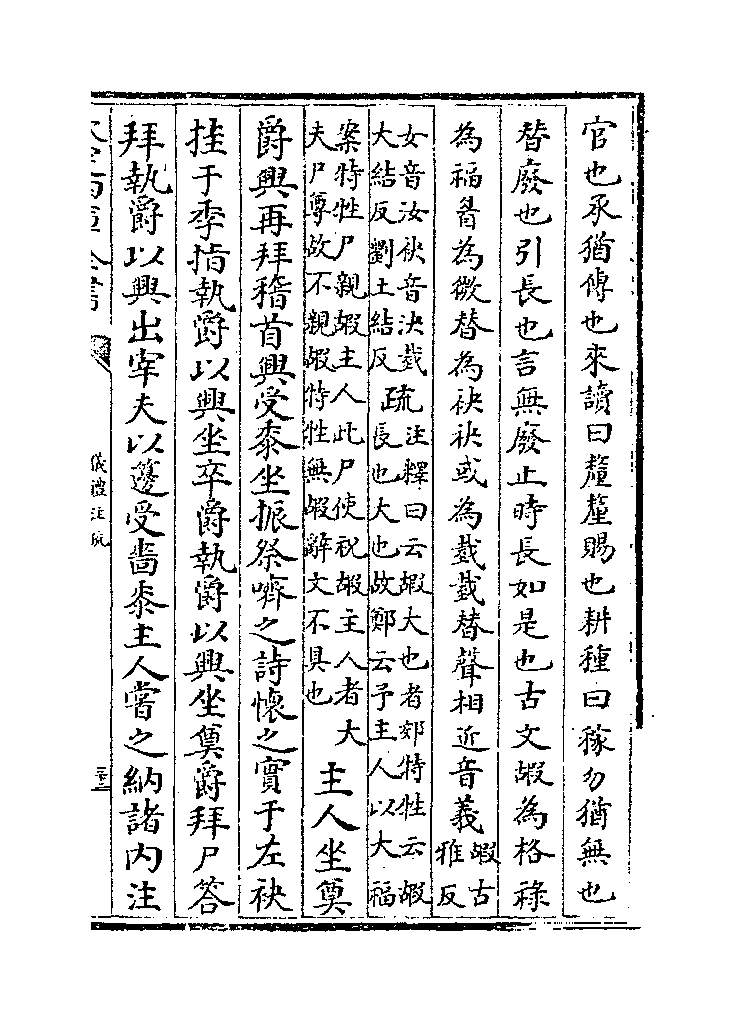 官也承猶傳也來讀曰釐釐賜也耕種曰稼勿猶無也
替廢也引長也言無廢止時長如是也古文嘏為格祿
為福眉為微替為袂袂或為臷臷替聲相近音義嘏古雅反
女音汝袂音決臷大結反劉土結反疏注釋曰云嘏大也者郊特牲云嘏長也大也故鄭云予主人以大福
案特牲尸親嘏主人此尸使祝嘏主人者大夫尸尊故不親嘏特牲無嘏辭文不具也主人坐奠
爵興再拜稽首興受黍坐振祭嚌之詩懷之實于左袂
挂于季指執爵以興坐卒爵執爵以興坐奠爵拜尸答
拜執爵以興出宰夫以籩受嗇黍主人嘗之納諸内注
儀禮注疏